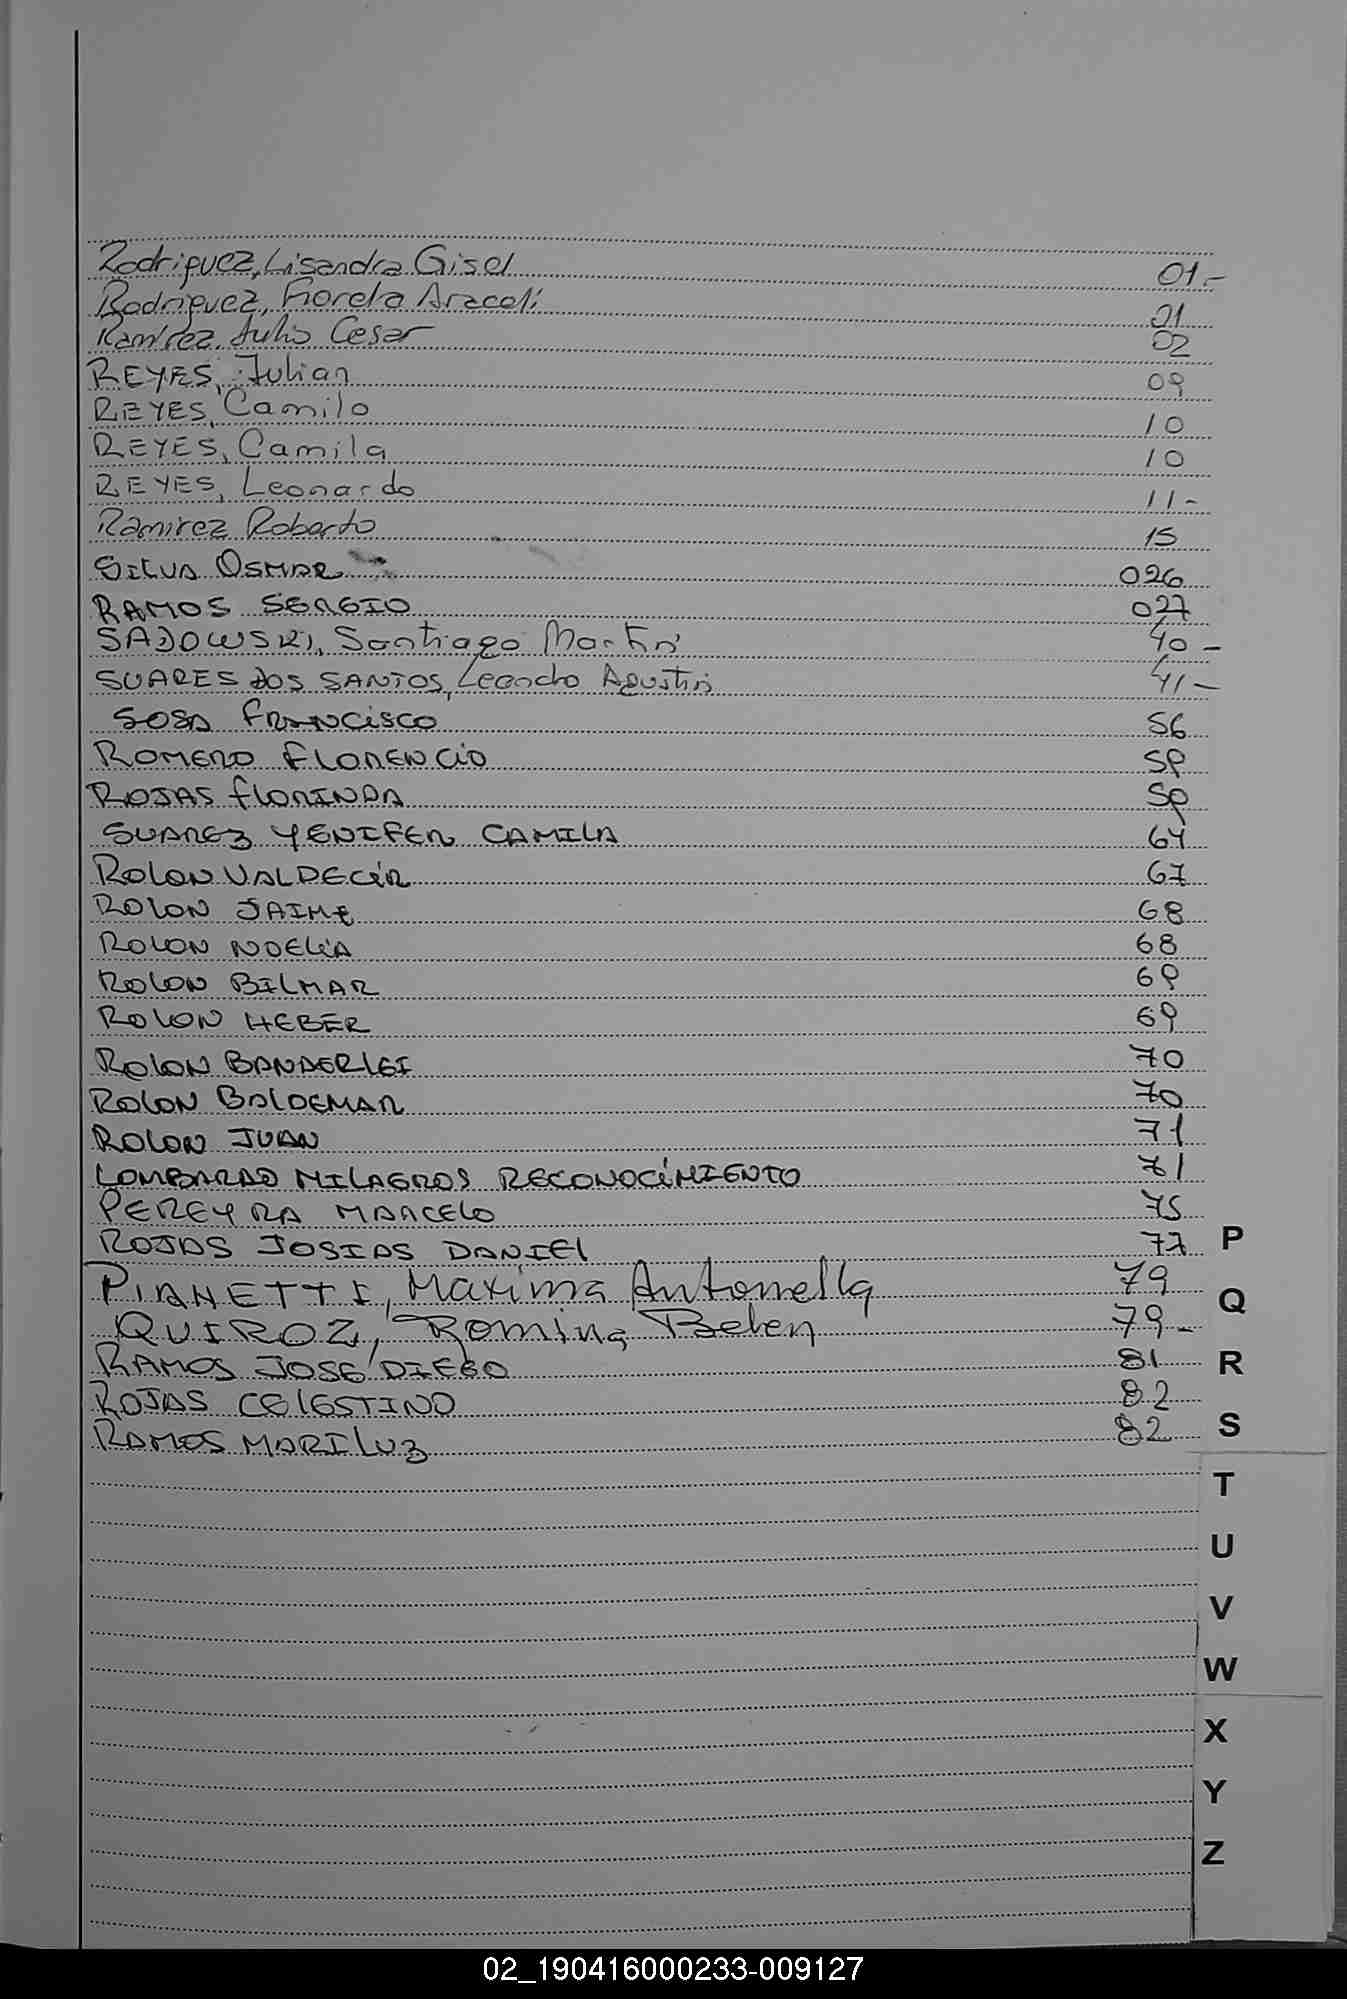 Rodriguez, Lisandra Gisel 01.-
Rodriguez, Fiorela Araceli 01
Ramírez Julio Cesar 02
REYES, Julian 09
REYES, Camilo 10
REYES, Camila 10
REYES, Leonardo 11-
Ramirez Roberto 15
SILVA OSMAR 026
RAMOS SERGIO 027
SADOWSKI, Santiago Martín 40-
SUARES DOS SANTOS, Leandro Agustín 41-
SOSA FRANCISCO 56
ROMERO FLORENCIO 59
ROJAS FLORINDA 59
SUAREZ YENIFER CAMILA 64
ROLON VALDECIR 67
ROLON JAIME 68
ROLON NOELIA 68
ROLON BILMAR 69
ROLON HEBER 69
ROLON BANDERLEI 70
ROLON BALDEMAR 70
ROLON JUAN 71
LOMBARDO MILAGROS RECONOCIMIENTO 71
PEREYRA MARCELO 75
ROJAS JOSIAS DANIEL 77
P
PIANETTI, Maxima Antonella 79
Q
QUIROZ, Romina Belen 79-
RAMOS JOSE DIEGO 81
R
ROJAS CELESTINO 82
RAMOS MARILUZ 82
S
T
U
V
W
X
Y
Z
02_190416000233-009127